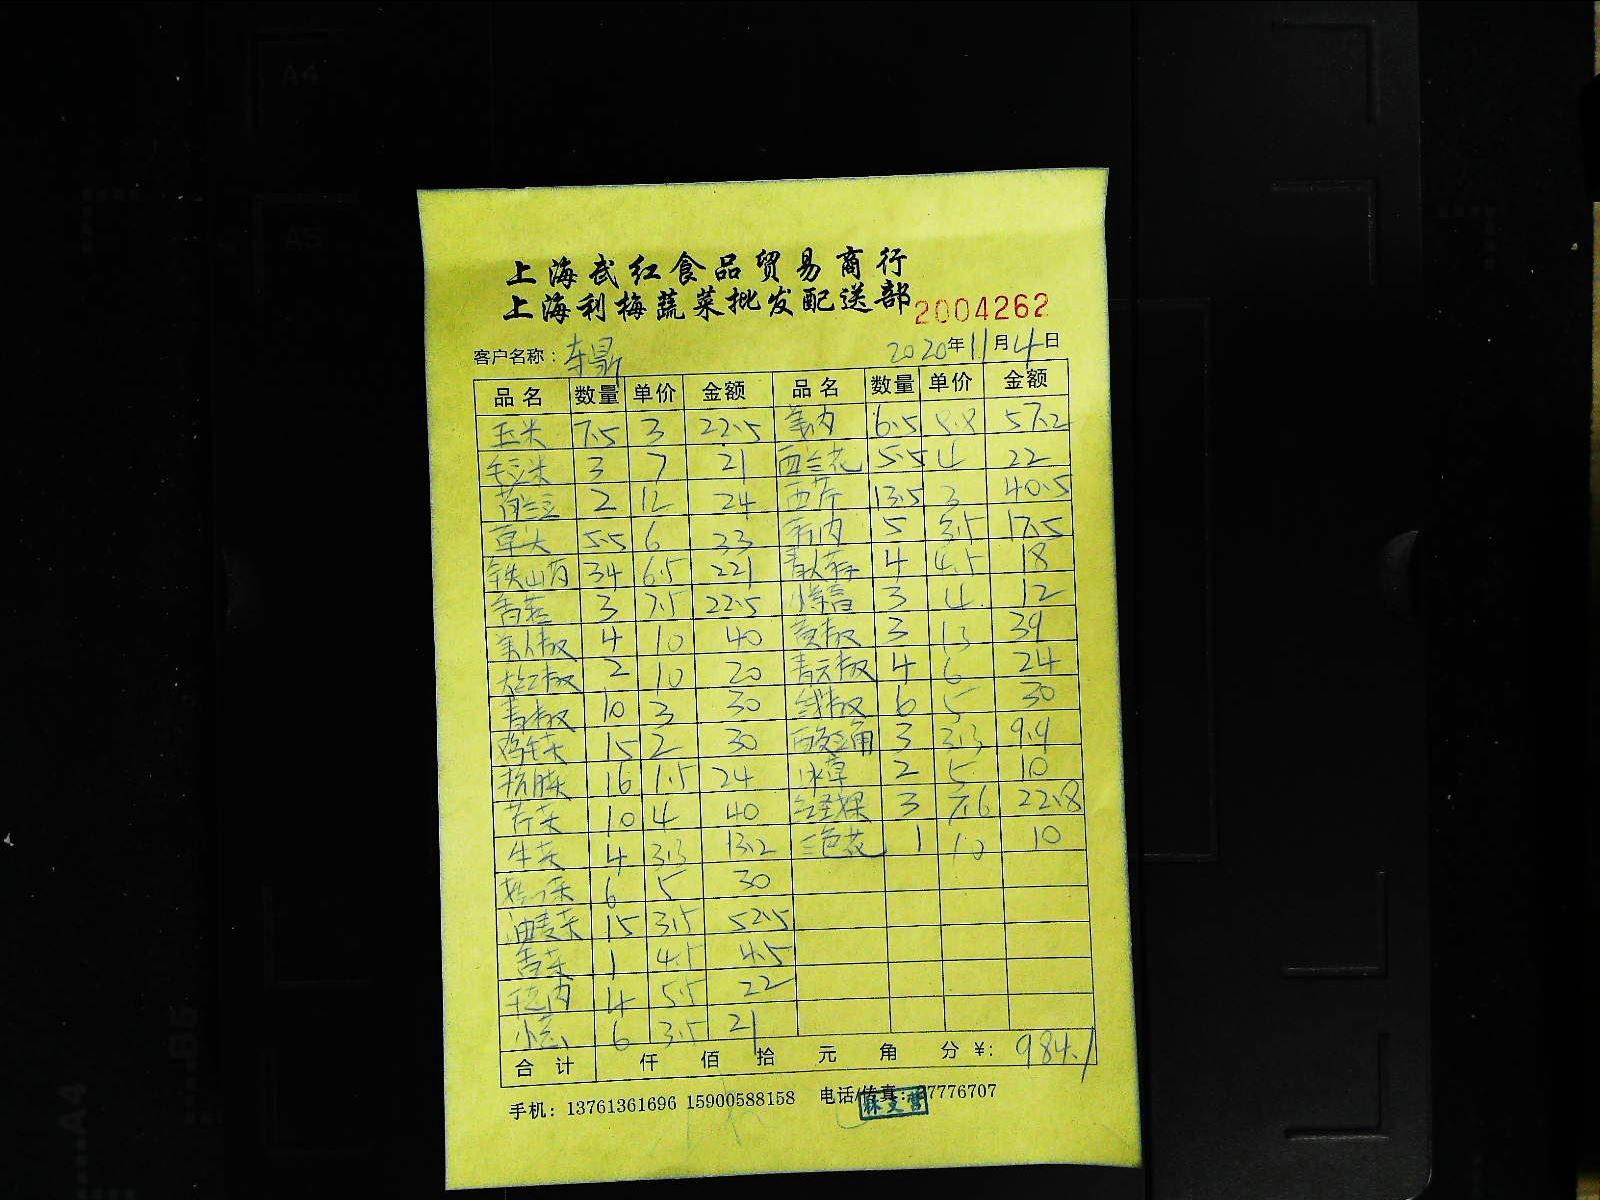 上海武红食品贸易商行
上海利梅蔬菜批发配送部 2004262
客户名称： 2020年11月4日
品名 数量 单价 金额 品名 数量 单价 金额
玉米 7.5 3 22.5 6.5 8.8 57.2
毛豆米 3 7 21 西兰花 5.5 4 22
荷兰豆 2 12 24 西芹 13.5 3 40.5
草头 5.5 6 33 5 3.5 17.5
铁山药 34 6.5 221 4 4.5 18
香菇 3 7.5 22.5 3 4 12
美人椒 4 10 40 黄椒 3 13 39
大红椒 2 10 20 4 6 24
青椒 10 3 30 线椒 6 5 30
鸡毛菜 15 2 30 3 3.3 9.9
16 1.5 24 冰草 2 5 10
芹菜 10 4 40 3 7.6 22.8
生菜 4 3.3 13.2 三色花 1 10 10
6 5 30
油麦菜 15 3.5 52.5
香菜 1 4.5 4.5
4 5.5 22
小葱 6 3.5 21
合计 仟 佰 拾 元 角 分 ¥: 984.1
手机：13761361696 15900588158 电话/传真：